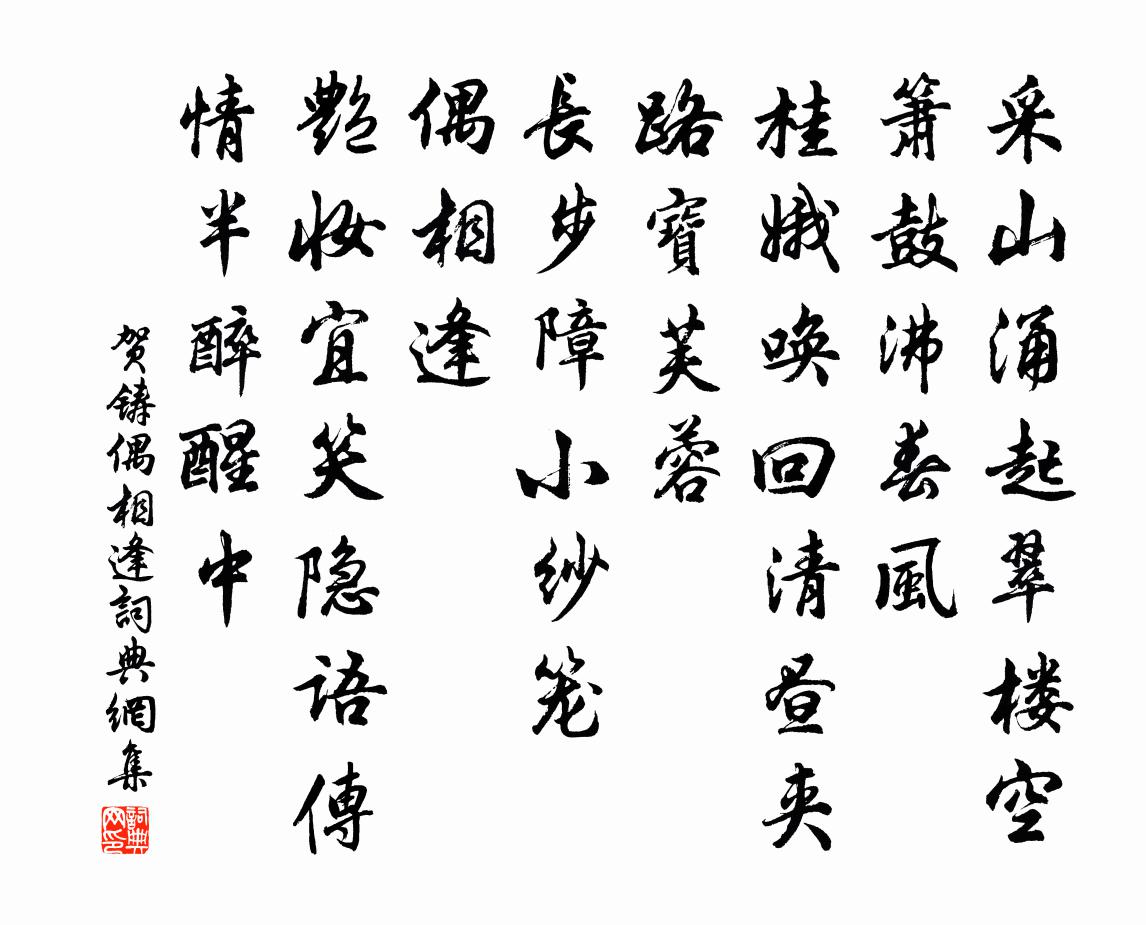 采山涌起翠楼空
箫鼓沸春風
桂娥唤回清昼夹
路寶芙蓉
長步障小纱笼
偶相逢
艷妆宜笑隐语傳
情半醉醒中
贺铸偶相逢詞典網集
詞典网印